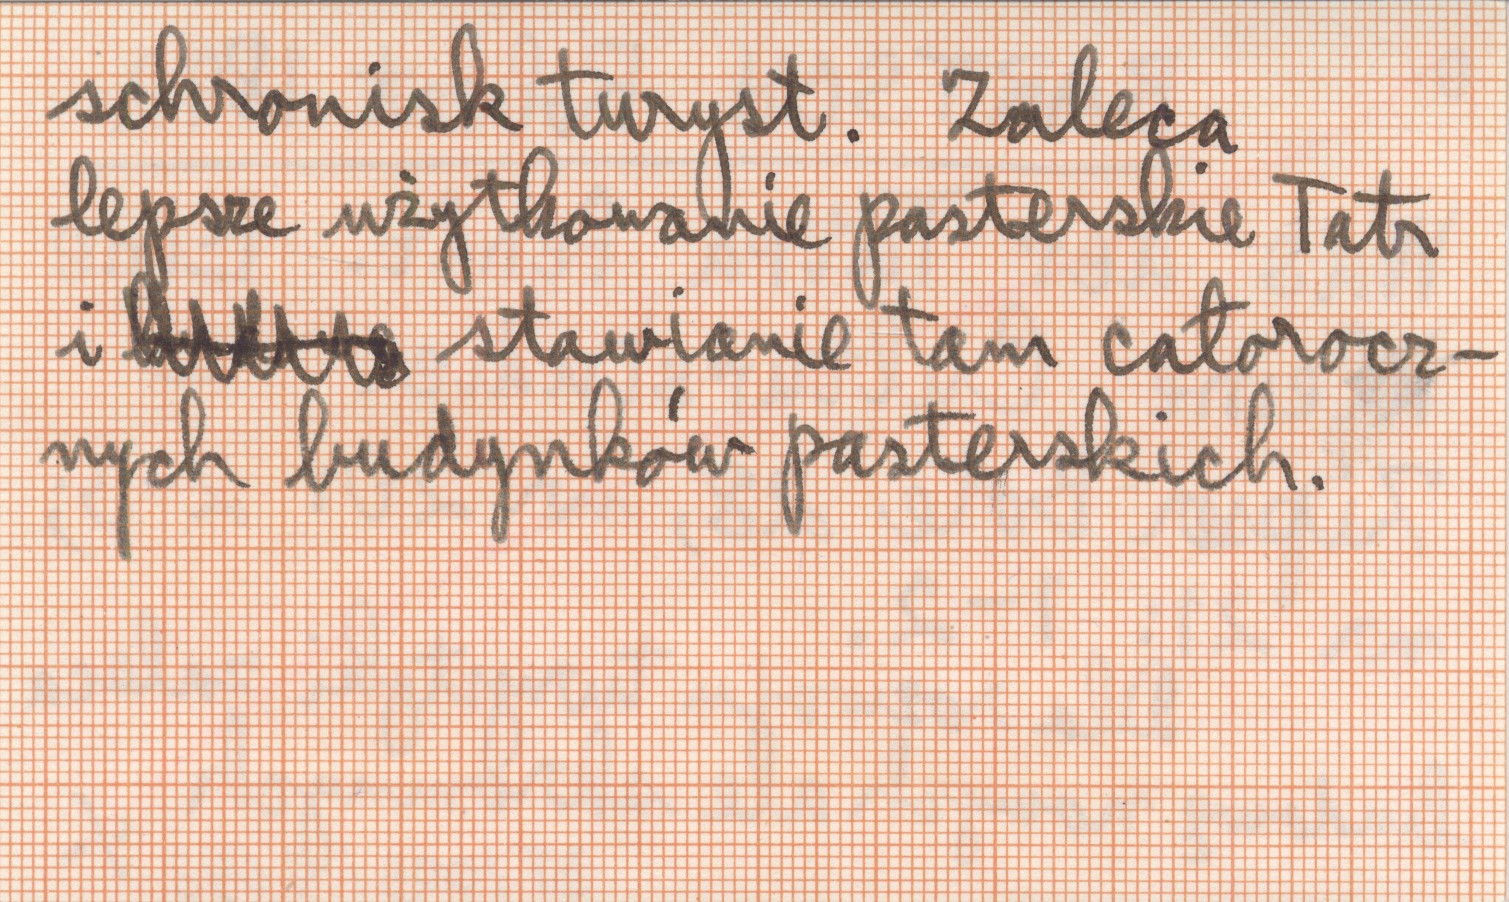 schronisk turyst. Zaleca
lepsze użytkowanie pasterskie Tatr
i stawianie tam całorocz-
nych budynków pasterskich.